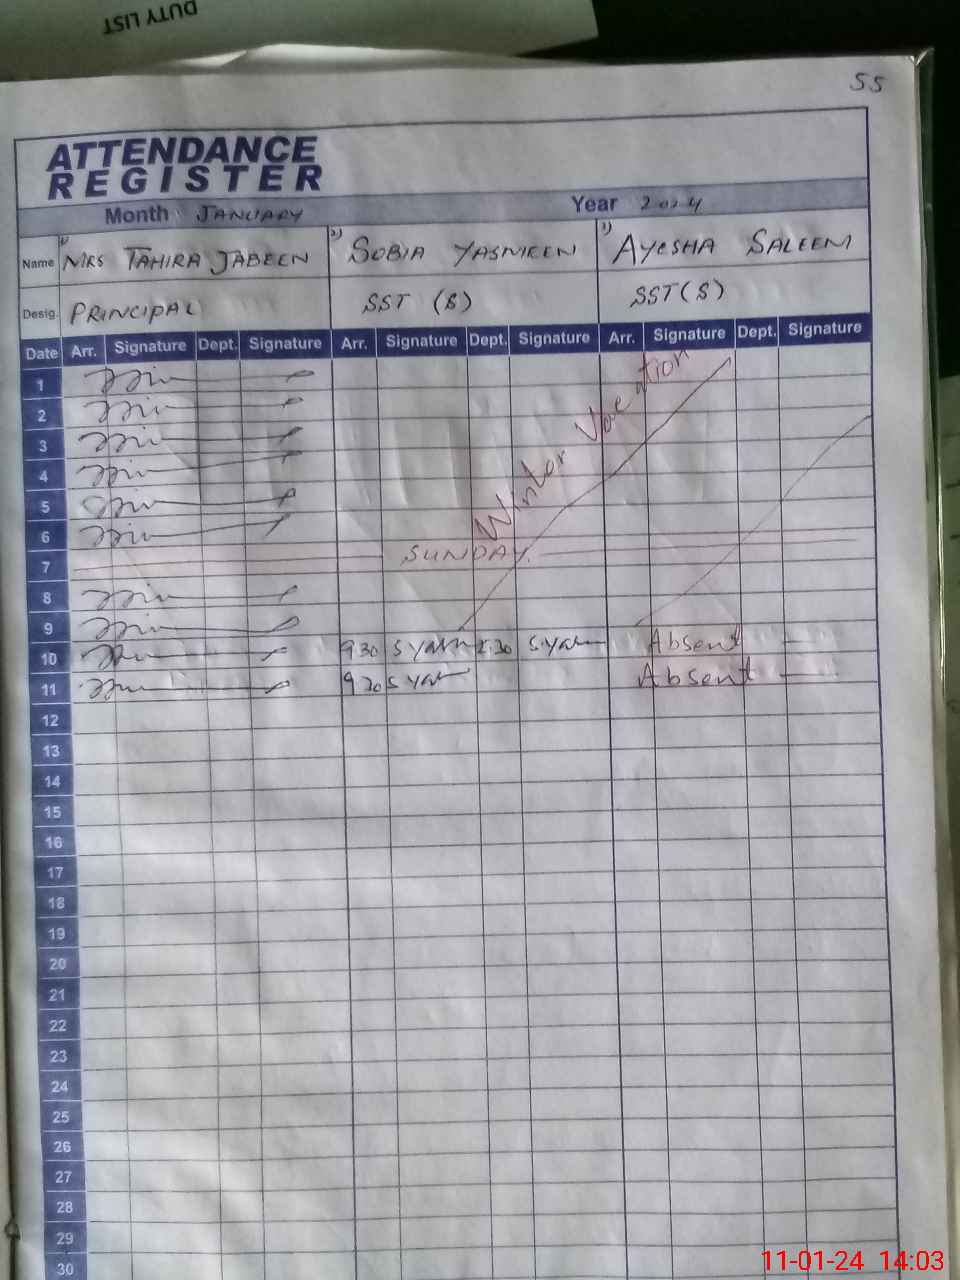 DUTY LIST
55
ATTENDANCE
REGISTER
Month JANUARY Year 2024
Name 1) MRS TAHIRA JABEEN 2) SOBIA YASMEEN 3) AYESHA SALEEM
Desig. PRINCIPAL SST (S) SST (S)
Date Arr. Signature Dept. Signature Arr. Signature Dept. Signature Arr. Signature Dept. Signature
1
2
3
4
5
6
Winter Vacation
7 SUNDAY
8
9
10 9 30 Syasm 2.30 Syasm Absent
11 9 30 Syasm Absent
12
13
14
15
16
17
18
19
20
21
22
23
24
25
26
27
28
29
30
11-01-24 14:03